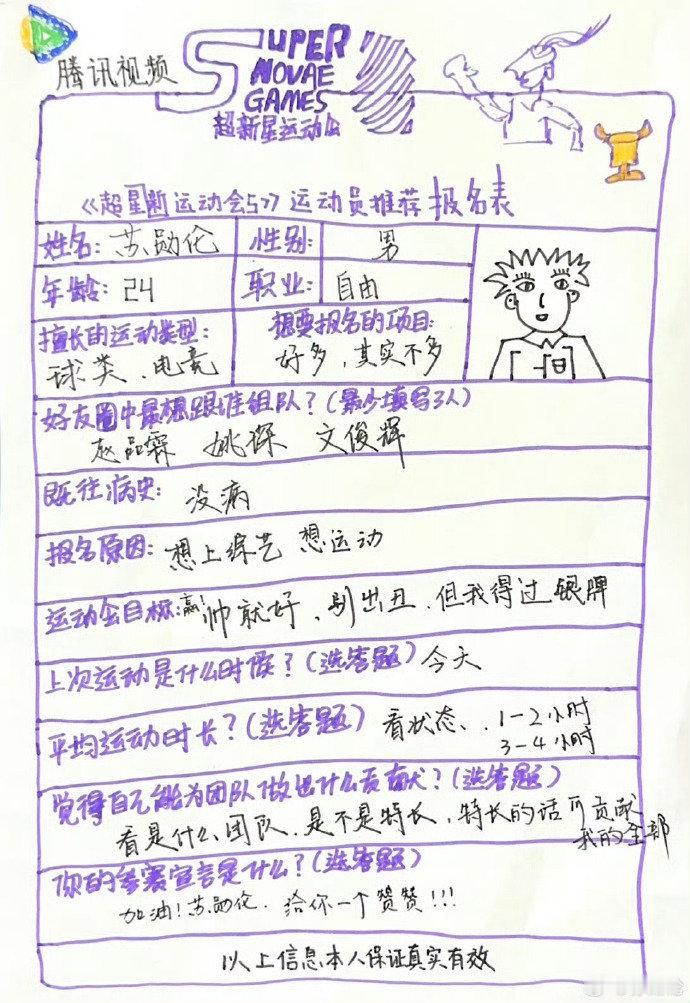 腾讯视频
SUPER
NOVAE
GAMES
超新星运动会
《超星新运动会5》运动员推荐 报名表
姓名: 苏勋伦 性别: 男
年龄: 24 职业: 自由
擅长的运动类型: 想要报名的项目:
球类、电竞 好多,其实不多
好友圈中最想跟谁组队?(最少填写3人)
赵品霖 姚琛 文俊辉
既往病史: 没病
报名原因: 想上综艺 想运动
运动会目标: 赢! 帅就好、别出丑、但我得过银牌
上次运动是什么时候?(选答题) 今天
平均运动时长?(选答题) 看状态、1-2小时
3-4小时
觉得自己能为团队做出什么贡献?(选答题)
看是什么团队、是不是特长、特长的话可贡献
我的全部
你的参赛宣言是什么?(选答题)
加油!苏勋伦、给你一个赞赞!!!
以上信息本人保证真实有效